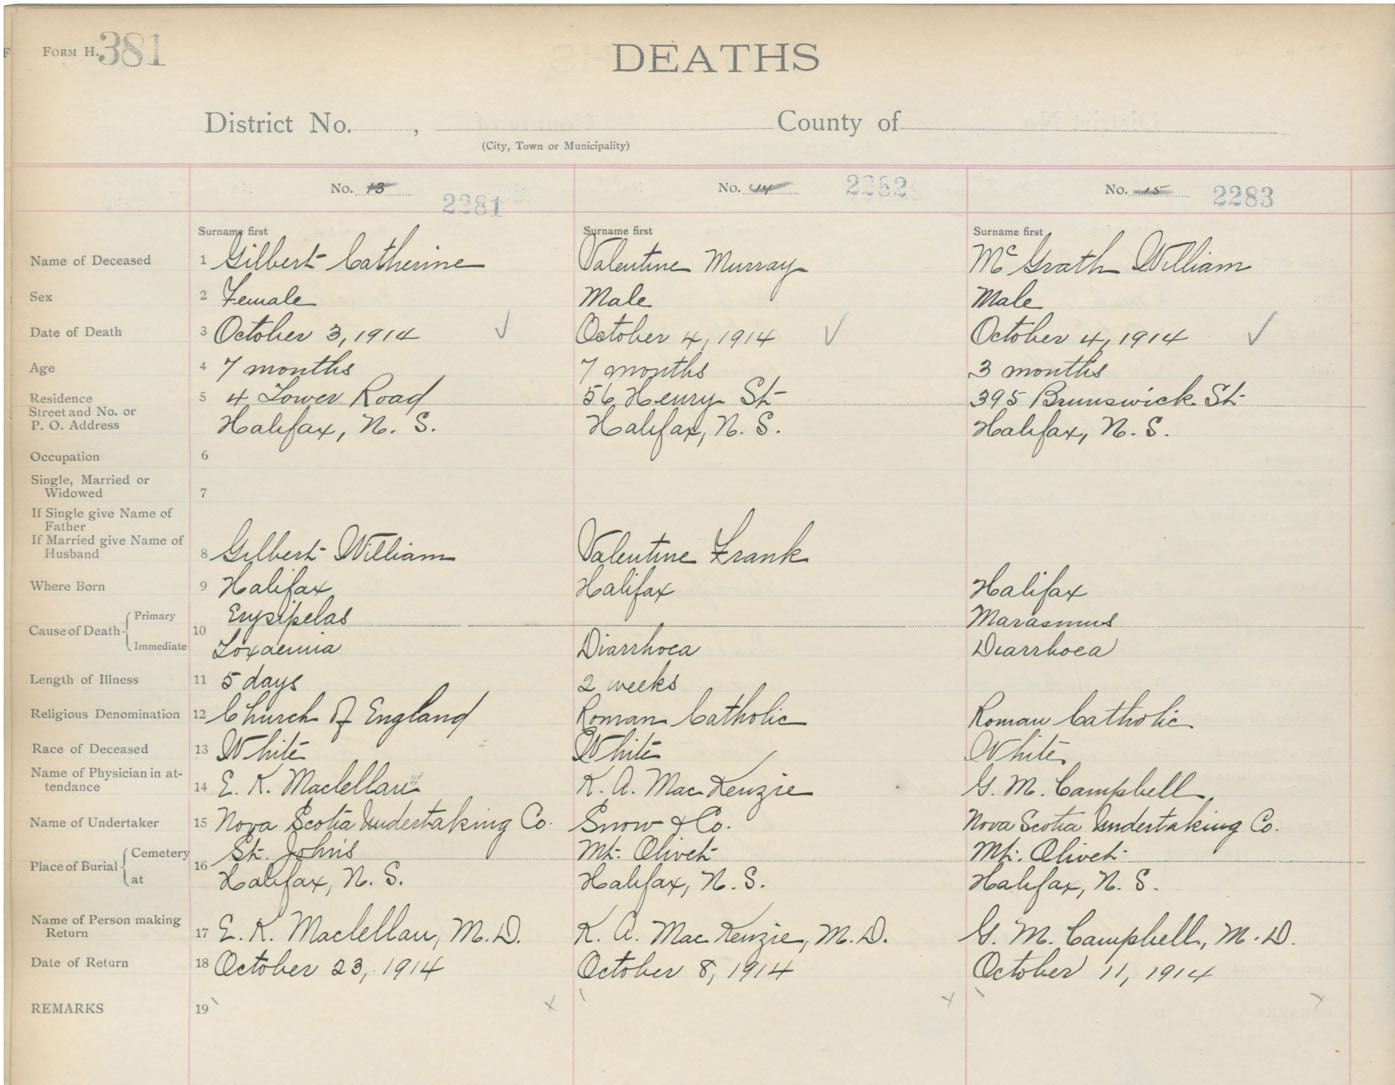 FORM H. 381
DEATHS
District No. , County of
(City, Town or Municipality)
No. 13 2281 No. 14 2282 No. 15 2283
Surname first Surname first Surname first
Name of Deceased 1 Gilbert Catherine Valentine Murray McGrath William
Sex 2 Female Male Male
Date of Death 3 October 3, 1914 October 4, 1914 October 4, 1914
Age 4 7 months 7 months 3 months
Residence 5 4 Lower Road 56 Henry St. 395 Brunswick St.
Street and No. or
P. O. Address Halifax, N. S. Halifax, N. S. Halifax, N. S.
Occupation 6
Single, Married or
Widowed 7
If Single give Name of
Father
If Married give Name of
Husband 8 Gilbert William Valentine Frank
Where Born 9 Halifax Halifax Halifax
Cause of Death 10 Primary Erysipelas Marasmus
Immediate Toxaemia Diarrhoea Diarrhoea
Length of Illness 11 5 days 2 weeks
Religious Denomination 12 Church of England Roman Catholic Roman Catholic
Race of Deceased 13 White White White
Name of Physician in at-
tendance 14 E. K. Maclellan K. A. MacKenzie G. M. Campbell
Name of Undertaker 15 Nova Scotia Undertaking Co. Snow & Co. Nova Scotia Undertaking Co.
Place of Burial 16 Cemetery St. John's Mt. Olivet Mt. Olivet
at Halifax, N. S. Halifax, N. S. Halifax, N. S.
Name of Person making
Return 17 E. K. Maclellan, M.D. K. A. MacKenzie, M.D. G. M. Campbell, M.D.
Date of Return 18 October 23, 1914 October 8, 1914 October 11, 1914
REMARKS 19